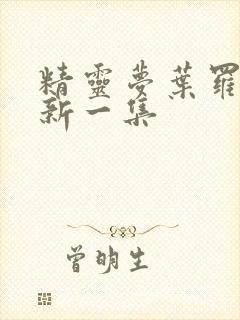 精靈夢葉羅
新一集
曾明生